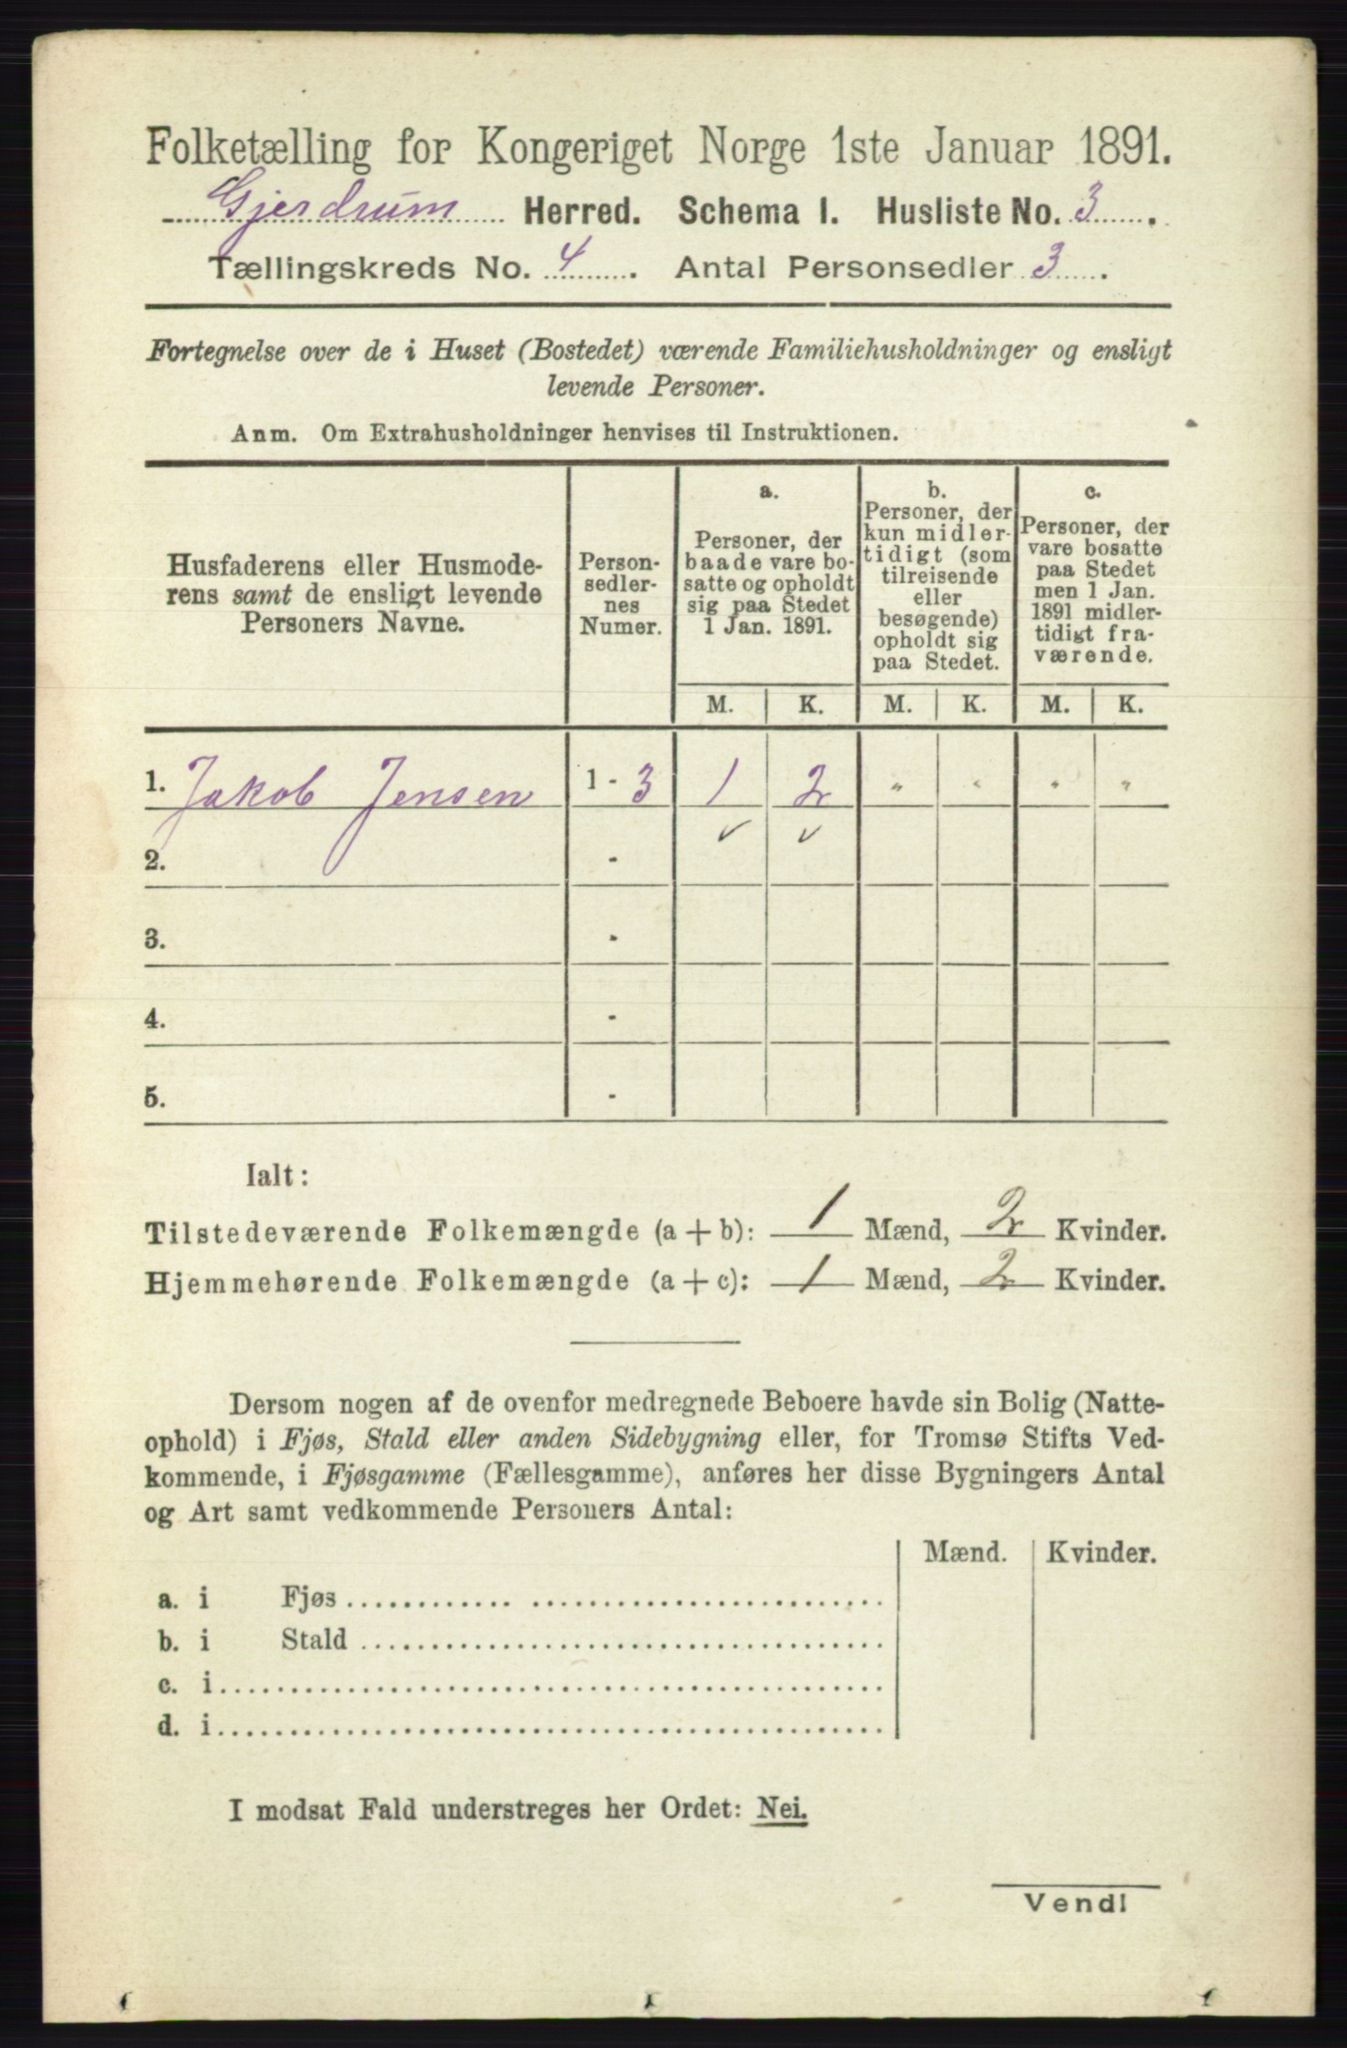 Folketælling for Kongeriget Norge 1ste Januar 1891.
Gjerdrum Herred. Schema I. Husliste No. 3.
Tællingskreds No. 4. Antal Personsedler 3.
Fortegnelse over de i Huset (Bostedet) værende Familiehusholdninger og ensligt
levende Personer.
Anm. Om Extrahusholdninger henvises til Instruktionen.
Husfaderens eller Husmode-
rens samt de ensligt levende
Personers Navne.
Person-
sedler-
nes
Numer.
a.
Personer, der
baade vare bo-
satte og opholdt
sig paa Stedet
1 Jan. 1891.
b.
Personer, der
kun midler-
tidigt (som
tilreisende
eller
besøgende)
opholdt sig
paa Stedet.
c.
Personer, der
vare bosatte
paa Stedet
men 1 Jan.
1891 midler-
tidigt fra-
værende.
M. K. M. K. M. K.
1. Jakob Jensen 1 - 3 1 2 " " " "
2. -
3. -
4. -
5. -
Ialt:
Tilstedeværende Folkemængde (a + b): 1 Mænd, 2 Kvinder.
Hjemmehørende Folkemængde (a + c): 1 Mænd, 2 Kvinder.
Dersom nogen af de ovenfor medregnede Beboere havde sin Bolig (Natte-
ophold) i Fjøs, Stald eller anden Sidebygning eller, for Tromsø Stifts Ved-
kommende, i Fjøsgamme (Fællesgamme), anføres her disse Bygningers Antal
og Art samt vedkommende Personers Antal:
Mænd. Kvinder.
a. i Fjøs
b. i Stald
c. i
d. i
I modsat Fald understreges her Ordet: Nei.
Vend!